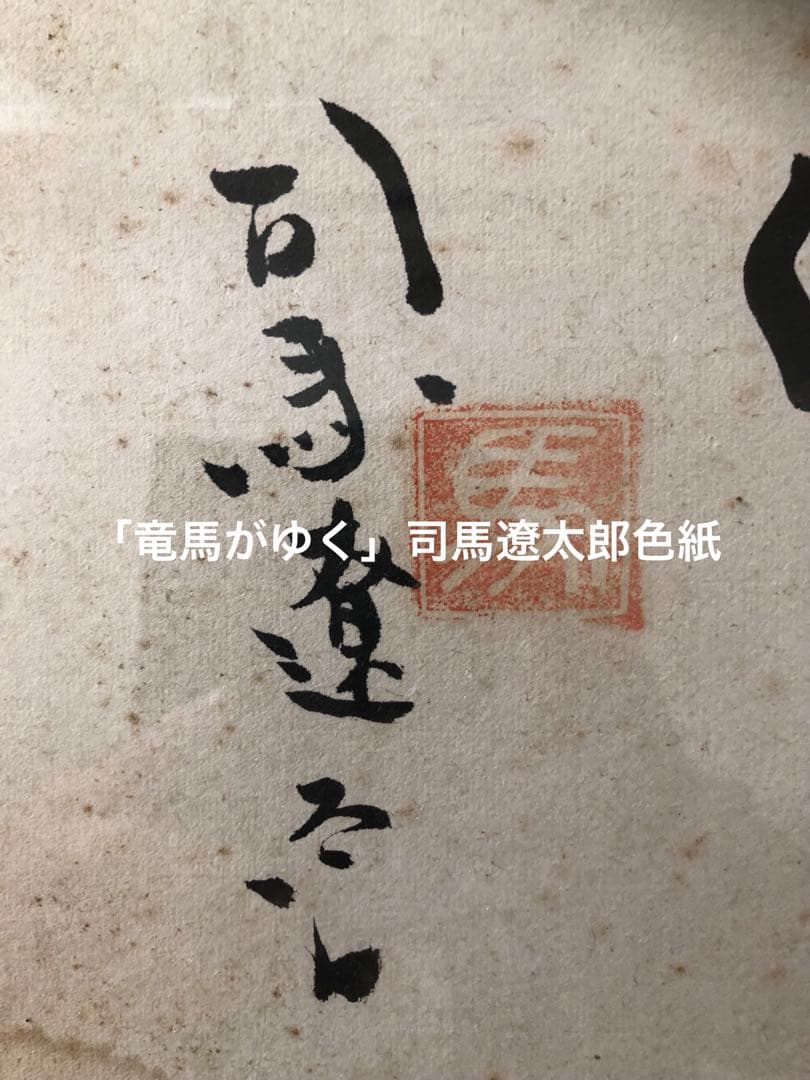 司馬遼
「竜馬がゆく」司馬遼太郎色紙